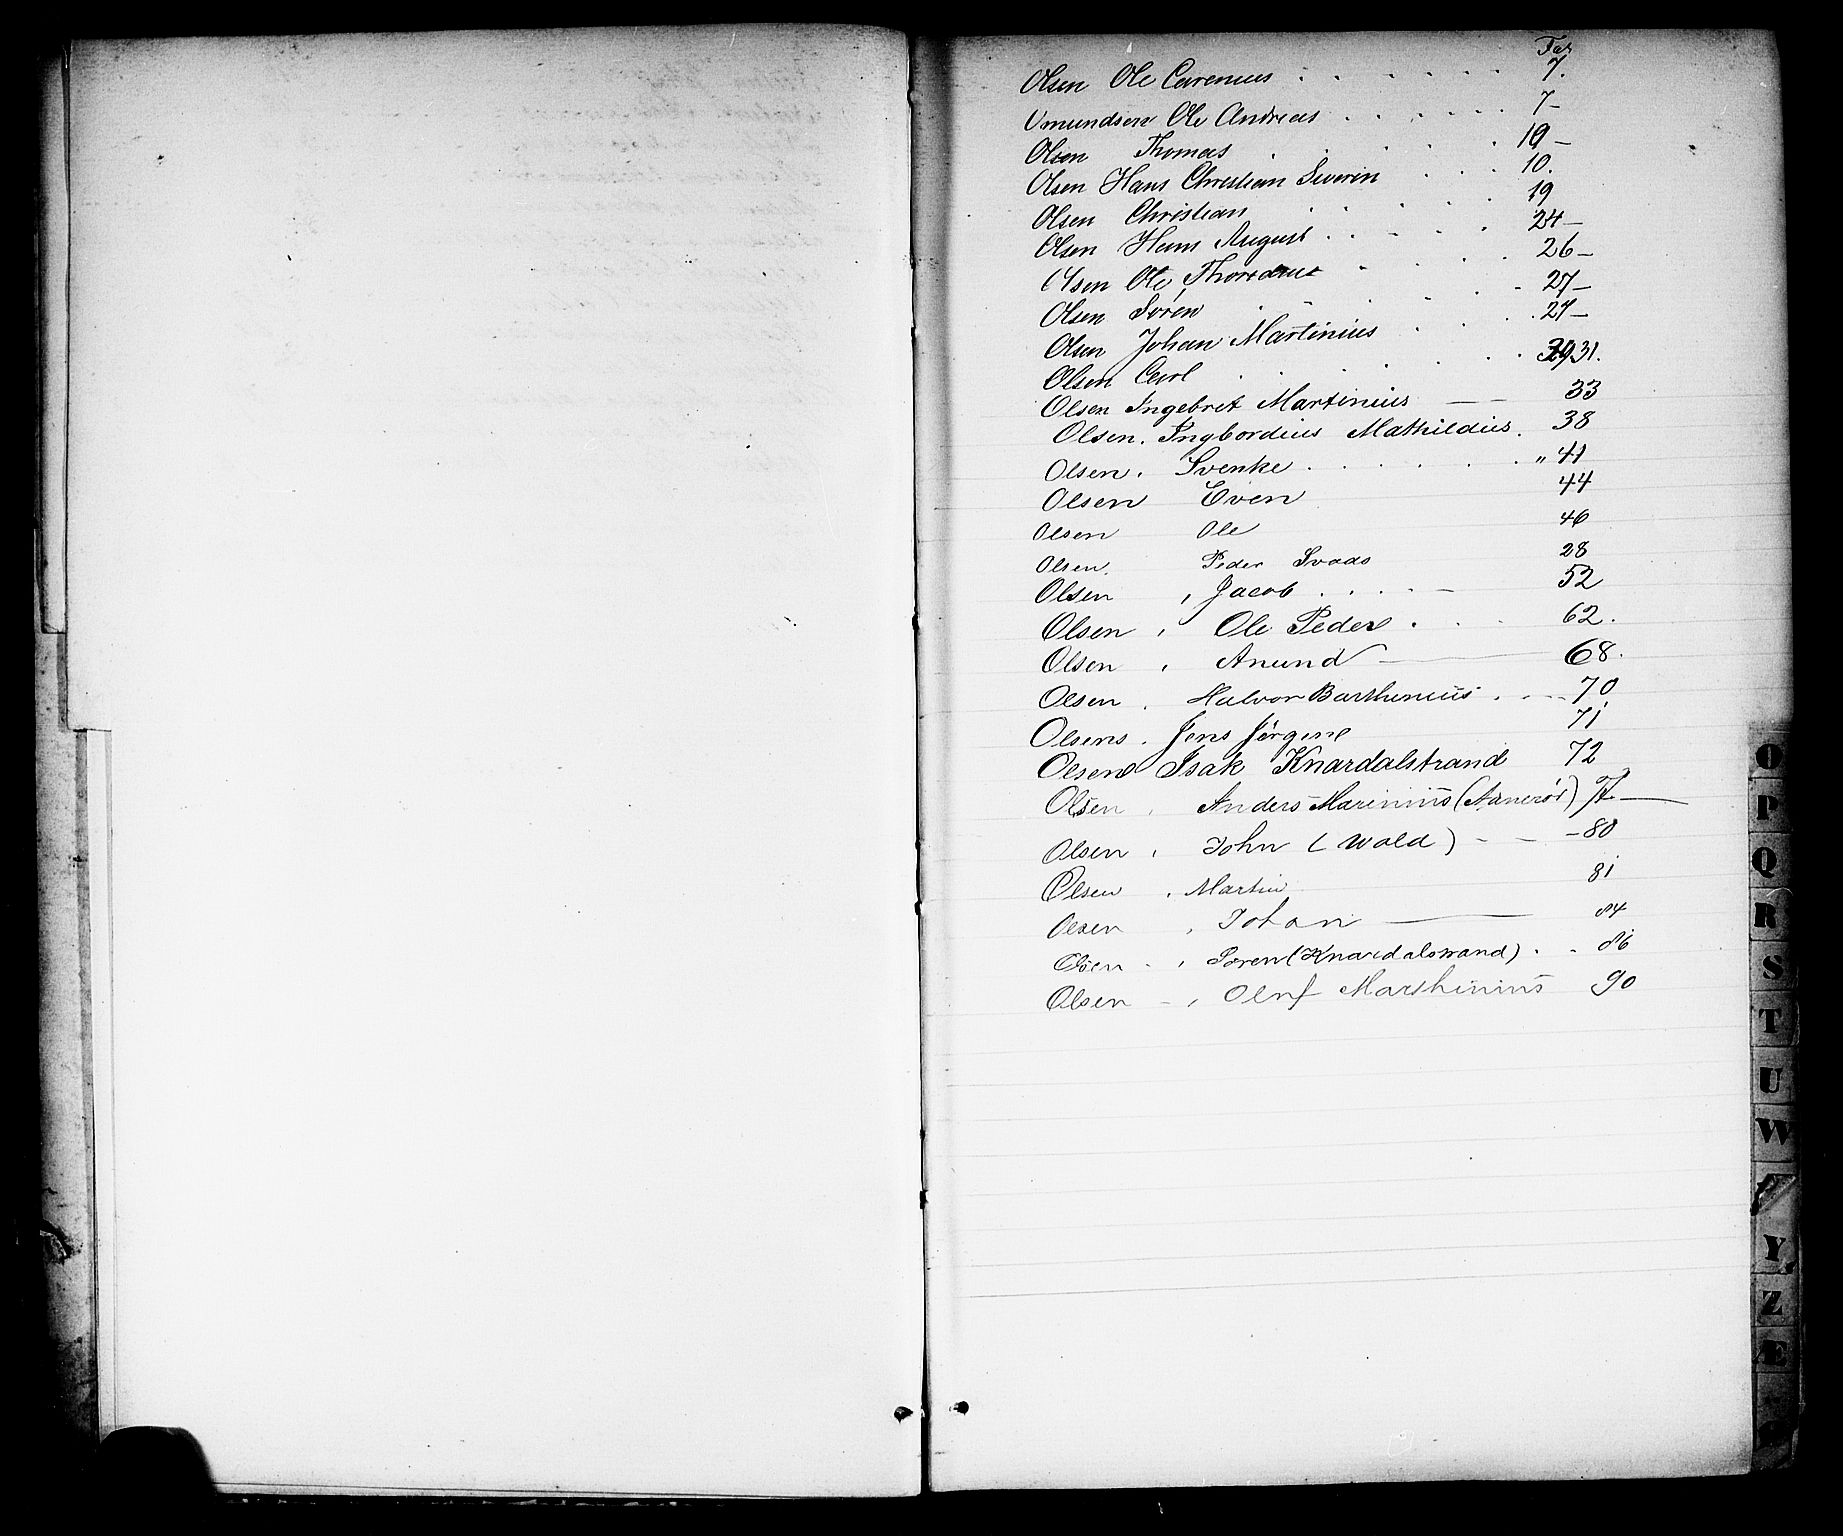 Fol
Olsen Ole Carenius . . . . . . 7.
Omundsen Ole Andreas . . . . . . 7-
Olsen Thomas . . . . . 19-
Olsen Hans Christian Severin . . . 10.
Olsen Christian . . . . . 19
Olsen Hans August . . . . . 24-
Olsen Ole . . . 26-
Olsen Sören . . . . . 27-
Olsen Johan Martinius . . . . 27-
Olsen Carl . . . . . . 31.
Olsen Ingebret Martinius — — 33
Olsen. Ingbordius Mathildius. 38
Olsen. Svenke . . . . . . . " 41
Olsen Even 44
Olsen Ole 46
Olsen. Peder Svads 28
Olsen , Jacob . . . . - 52
Olsen , Ole Peder . . . 62.
Olsen , Anund — 68.
Olsen , Halvor Barthenius . . - 70
Olsens . Jens Jørgen 71
Olsen Isak Knardalstrand 72
Olsen , Anders Marinius ( ) 77 —
Olsen , John (Wold) - - - 80
Olsen , Martin 81
Olsen , Johan — 84
Olsen - , Søren (Knardalstrand) . . 86
Olsen - , Oluf Marthinius 90
O
P
Q
R
S
T
U
W
Y
Z
Æ